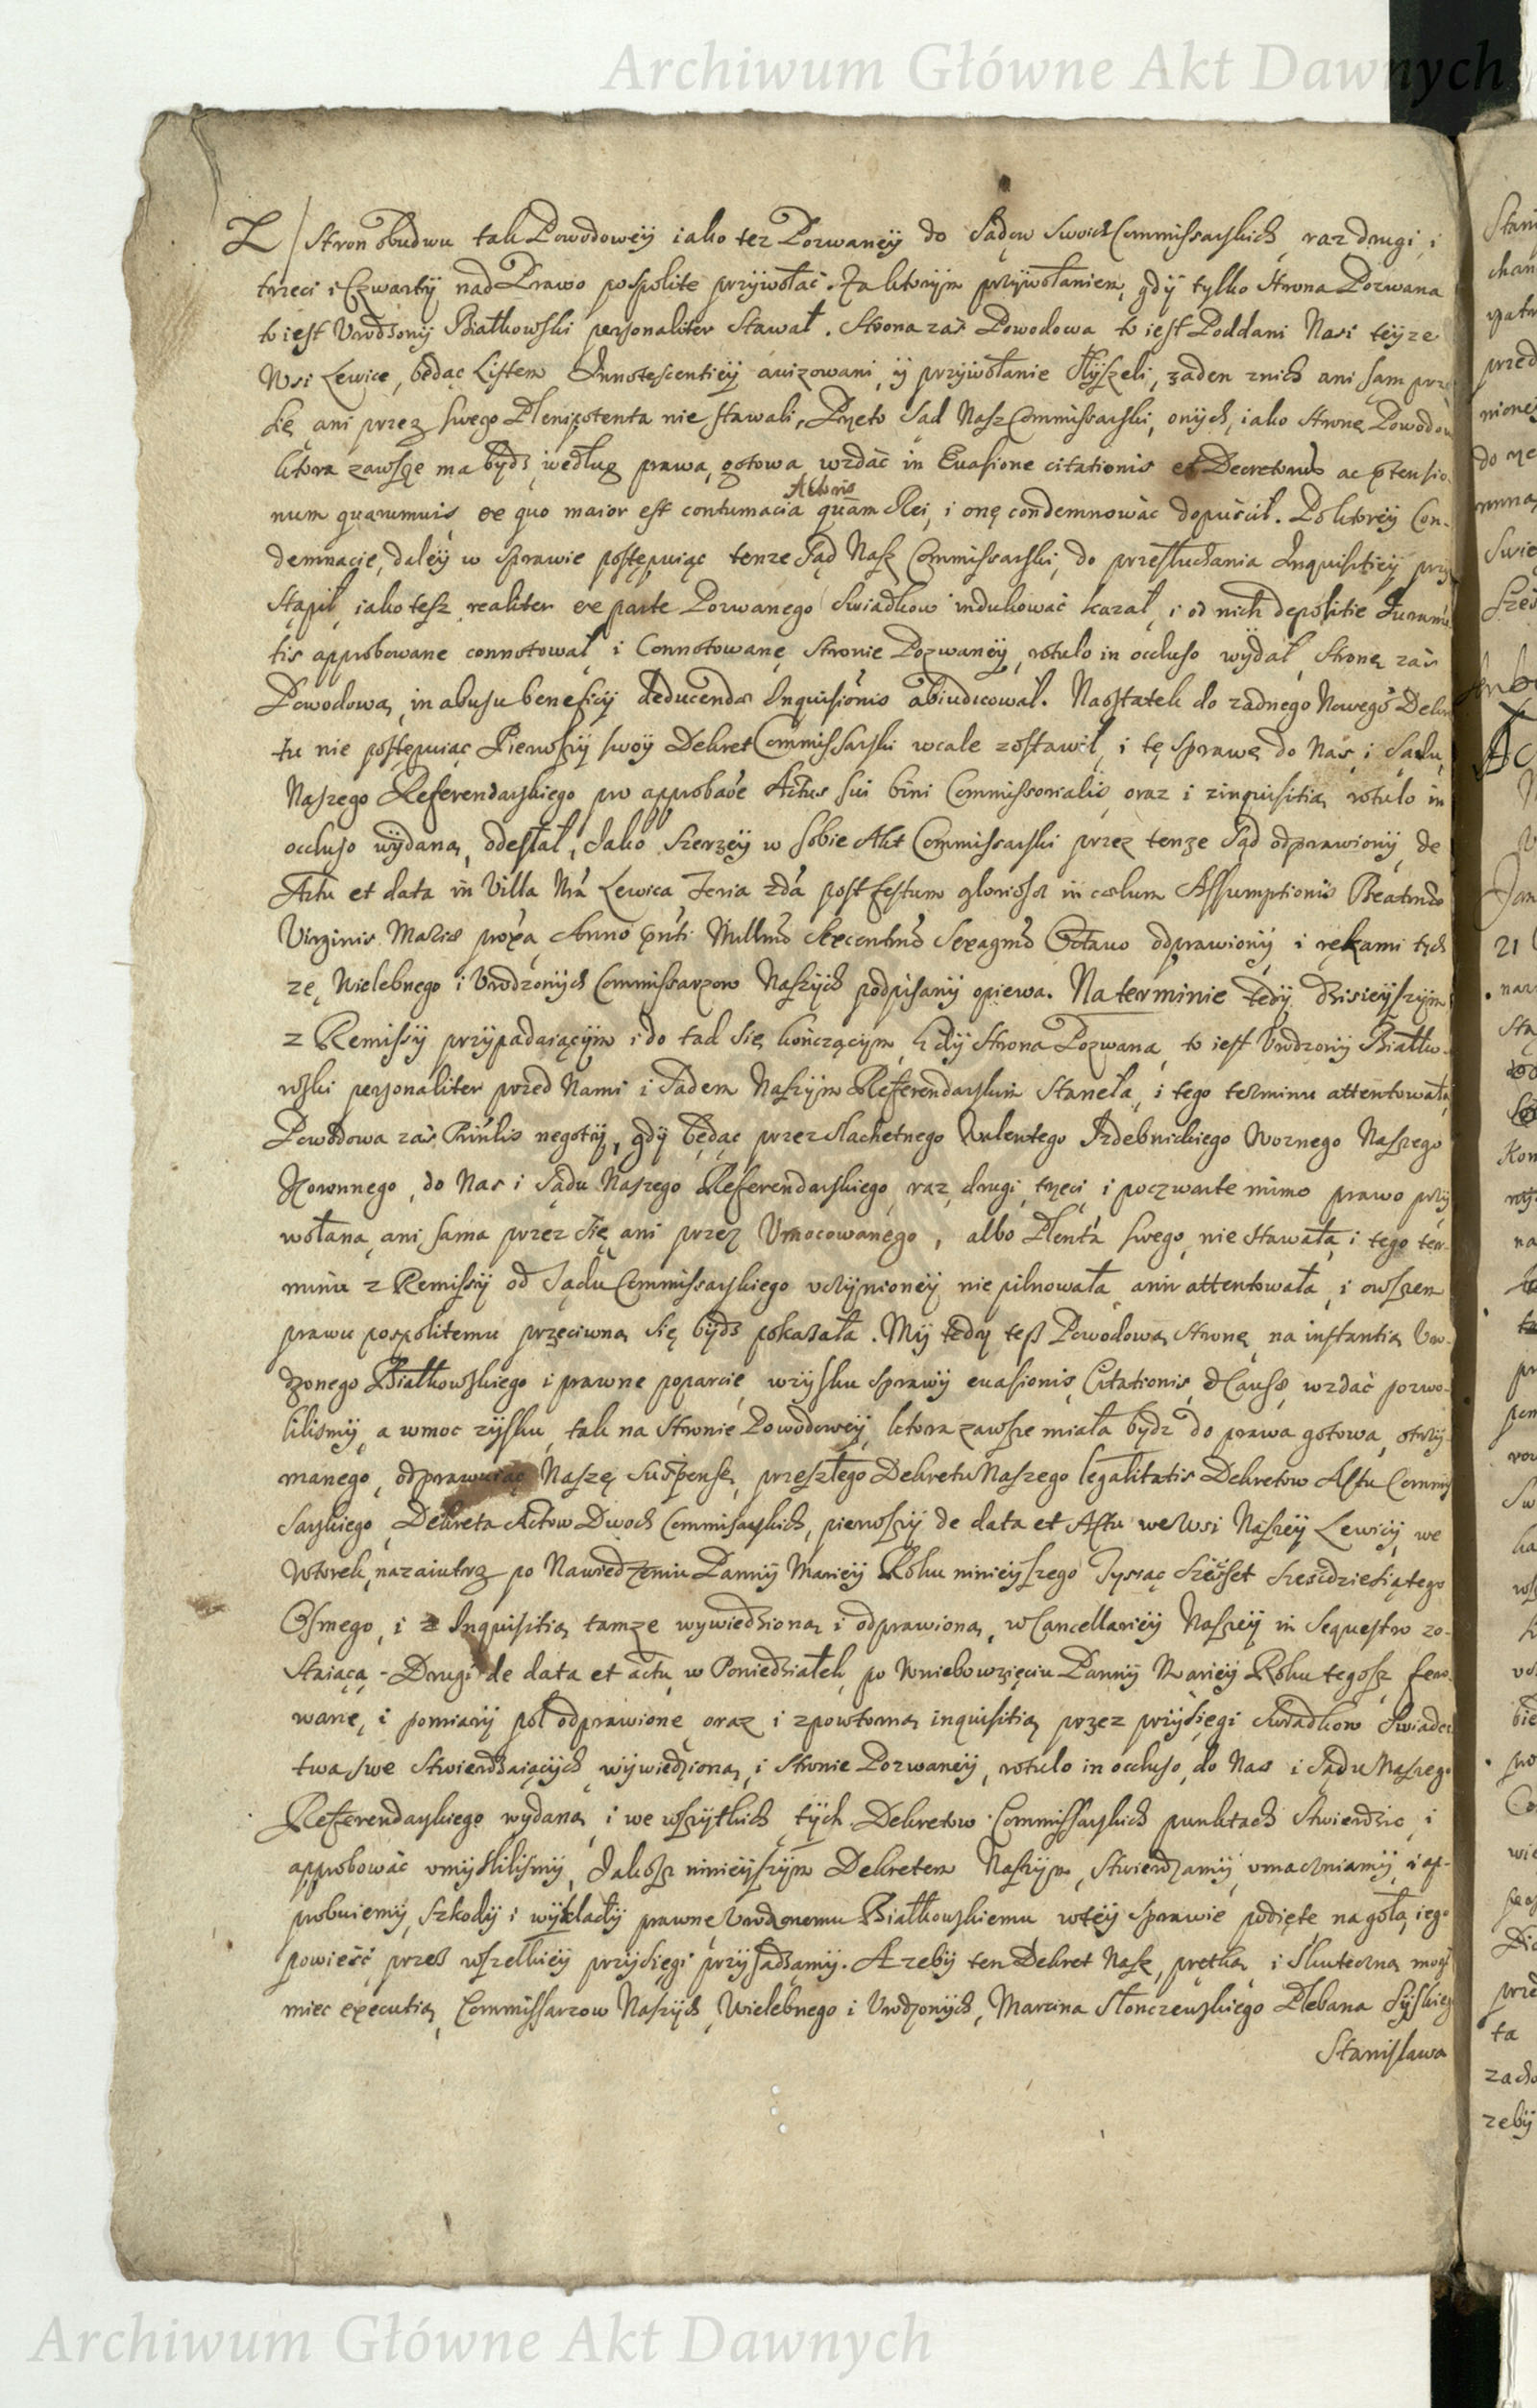 Archiwum Główne Akt Dawnych
Z Stron obudwu tak Powodowey iako tez Pozwaney do Sądow Swoich Commissarskich, raz drugi, i
trzeci i Czwarty nad Prawo pospolite przywołać. Za ktorym przywołaniem, gdy tylko Strona Pozwana
to iest Urodzony Białkowski personaliter Stawał. Strona zaś Powodowa to iest Poddani Nasi teyze
Wsi Lewice, będąc Listem Innotescentiey awizowani, y przywołanie słyszeli, zaden znich ani sam prze
Się ani przez swego Plenipotenta nie stawali, Przeto Sąd Nasz Commissarski, onych, iako Stronę Powodow
ktora zawsze ma bydz według prawa gotowa, wzdać in Evasione citationis et Decretorum ac prtensio
num quarumvis ex quo maior est contumacia Actoris quam Rei, i onę condemnować dopuścił. Po ktorey Con-
demnacie, daley w sprawie postępuiąc tenze Sąd Nasz Commissarski, do przesłuchania Inquisitiey przy
stąpił, iakotesz realiter ex parte Pozwanego Swiadkow indukować kazał, i od nich depositie Iuramē
tis approbowane connotował, i Connotowane Stronie Pozwaney, rotulo in occluso wydał, Stronę zaś
Powodową, in abusu beneficij deducendæ Inquisionis abiudicował. Naostatek do zadnego Nowego Dekre
tu nie postępuiąc Pierwszy swoy Dekret Commissarski wcale zostawił, i tę sprawę do Nas i Sądu
Naszego Referendarskiego pro approbaōe Actus sui bini Commissorialis oraz i zinquisitią rotulo in
occluso wydaną, odesłał, Iako Szerzey w sobie Akt Commissarski przez tenze Sąd odprawiony, de
Actu et data in Villa Nrā Lewica Feria 2dā post festum gloriosæ in cœlum Assumptionis Beatmæ
Virginis Mariæ proxā Anno prnti Millmo Sexcentmo Sexagmo Octavo odprawiony i rękami tych
ze, Wielebnego i Urodzonych Commissarzow Naszych podpisany opiewa. Na terminie tedy dzisieyszym
z Remissy przypadaiącym i do tąd się kończącym, Gdy Strona Pozwana, to iest Urodzony Białko-
wski personaliter przed Nami i Sądem Naszym Referendarskim Stanęła, i tego terminu attentowała
Powodowa zaś Prinlis negotij, gdy będąc przez Slachetnego Walentego Izdebnickiego Woznego Naszego
Koronnego, do Nas i Sądu Naszego Referendarskiego raz, drugi, trzeci i poczwarte mimo prawo przy
wołana, ani sama przez się ani przez Umocowanego, albo Plenta swego, nie stawała, i tego ter-
minu z Remissy od Sądu Commissarskiego uczynioney nie pilnowała, aniv attentowała, i owszem
prawu pospolitemu przeciwną się bydz pokazała. My tedy tesz Powodową Stronę, na instantią Uro-
dzonego Białkowskiego i prawne poparcie, wzysku sprawy evasionis, Citationis, & Causæ, wzdać pozwo-
liliśmy, a wmoc zysku, tak na Stronie Powodowey, ktora zawsze miała bydz do prawa gotowa, otrzy-
manego, odprawuiąc Naszę Suspensę, przeszłego Dekretu Naszego legalitatis Dekretow Actu Commis
sarskiego Dekreta Actow Dwoch Commisarskich, pierwszy de data et Actu we Wsi Naszey Lewicy, we
Wtorek, nazaiutrz po Nawiedzeniu Panny Mariey Roku ninieyszego Tysiąc Sześćset Sześćdziesiątego
Osmego, i z Inquisitią tamze wywiedzioną i odprawioną, w Cancellariey Naszey in Sequestro zo-
staiącą - Drugi de data et actu w Poniedziałek, po Wniebowzięciu Panny Mariey Roku tegosz fero-
wane, i pomiary pol odprawione oraz i zpowtorną inquisitią przez przysięgi Swiadkow Swiadec
twa swe Stwierdzaiących, wywiedzioną, i Stronie Pozwaney, rotulo in occluso, do Nas i Sądu Naszego
Referendarskiego wydaną i we wszytkich tych Dekretow Commissarskich punktach Stwierdzic, i
approbować umyśliliśmy, Iakosz ninieyszym Dekretem Naszym, Stwierdzamy, umacniamy, i ap-
probuiemy, szkody i wykłady prawne Urodzonemu Białkowskiemu wtey sprawie podięte na gołą iego
powieść przez wszelkiey przysięgi przysądzamy. A zeby ten Dekret Nasz, prętką i Skuteczną mogł
miec executią, Commissarzow Naszych, Wielebnego i Urodzonych, Marcina Słonczewskiego Plebana
Stanisława
Archiwum Główne Akt Dawnych